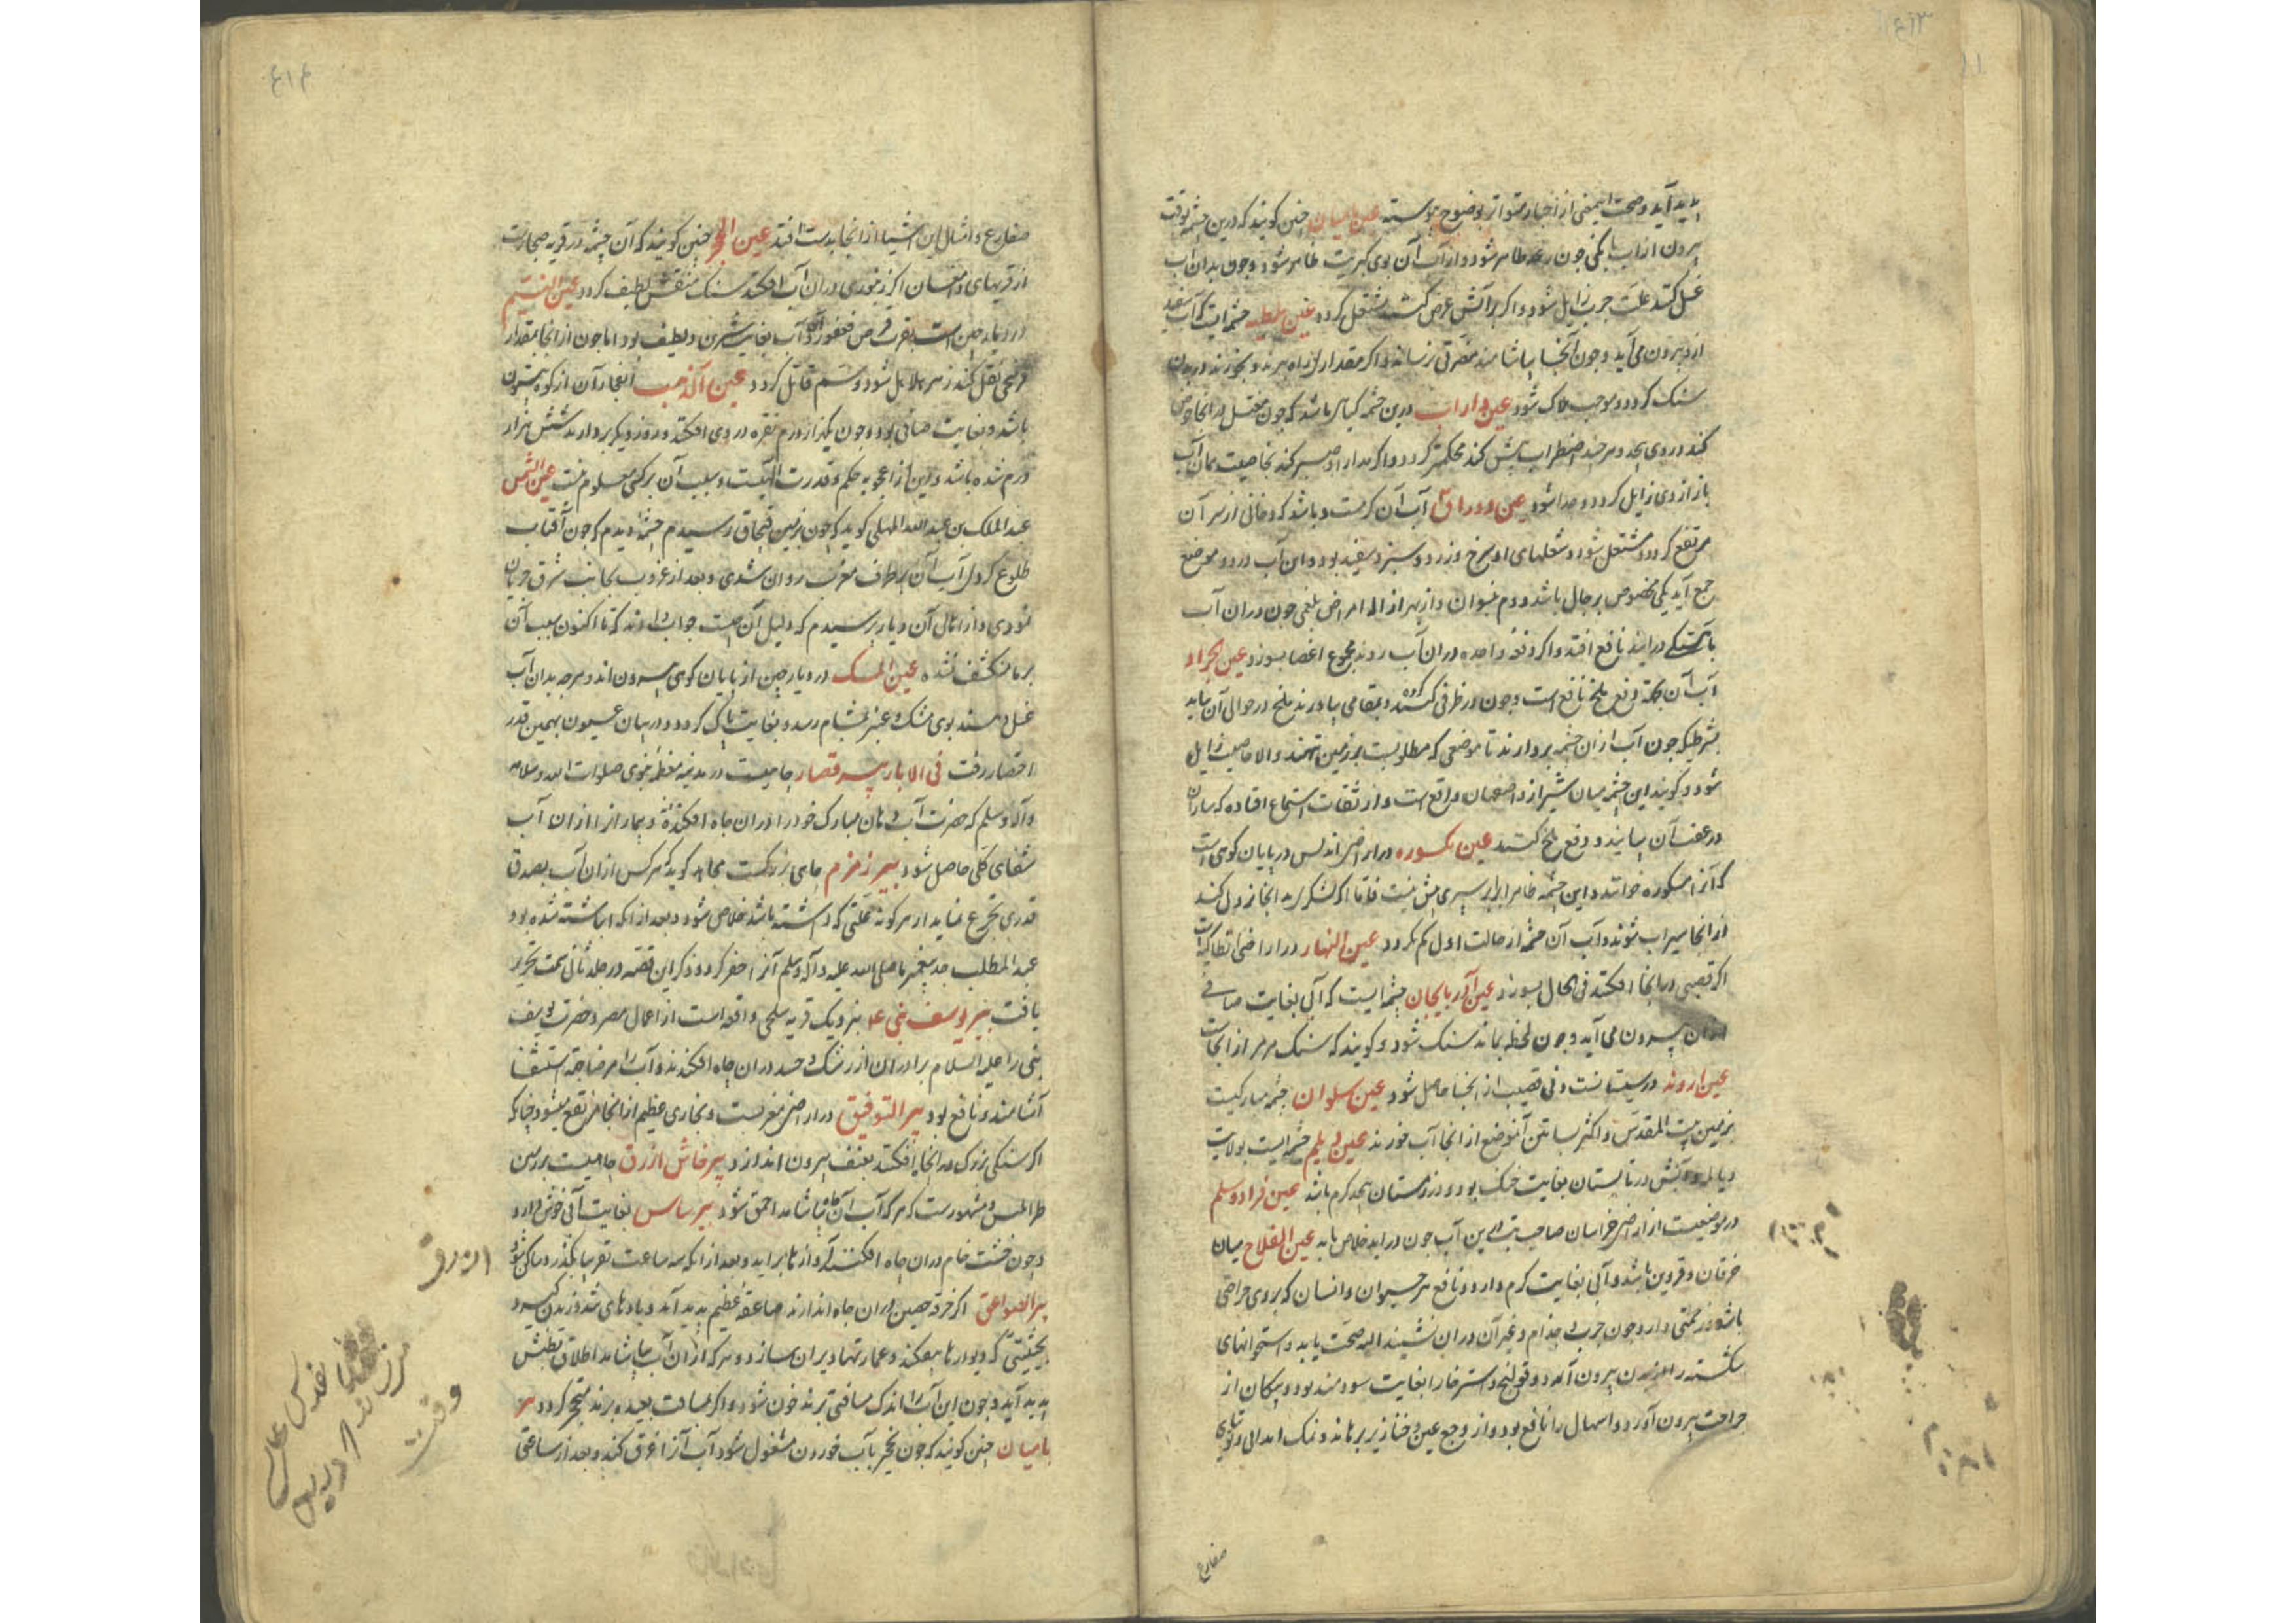 پدید آید و صحت اینمعنی از اخبار متواتر بوضوح پیوسته عین بامیان چنین کویند که درین چشمه بوقت
بیرون از آب بانکی چون رعد ظاهر شود و از آب آن بوی کبریت ظاهر شود و چون بدان آب
غسل کنند علت جرب زایل شود و اکر بر آتش عرض کنند مشتعل کردد عین چشمه ایست که آب سفید
ازو بیرون می آید و چون آنجا بیاشامند مضرتی نرساند و اکر مقداری از راه ببرند و بخورند در بدن
سنک کردد و موجب هلاک شود عین داراب درین چشمه کیاهی باشد که چون مغتسل در آنجا خوض
کند در وی پیچد و هرچند اضطراب بیش کند محکمتر کردد و اکر مدارا و صبر کند بخاصیت همان آب
باز از وی زایل کردد و جدا شود عین دوراق آب آن کرمست و باشد که دخانی از سر آن
مرتفع کردد و مشتعل شود و شعلهای او سرخ و زرد و سبز و سفید بود و این آب در دو موضع
جمع آید یکی مخصوص برجال باشد و دوم بنسوان و از بهر ازاله امراض بلغمی چون در آن آب
بآهستکی درآیند نافع افتد و اکر دفعة واحده در آن آب روند مجموع اعضا بسوزد عین الجراد
آب آن بجهة دفع ملخ نافع است و چون در ظرفی کنند و بمقامی بیاورند ملخ در حوالی آن نیاید
بشرطیکه چون آب از آن چشمه بردارند تا موضعی که مطلوبست بر زمین ننهند و الا خاصیت زایل
شود و کویند این چشمه میان شیراز و اصفهان واقع است و از ثقات استماع افتاده که ساران
در عقب آن بیایند و دفع ملخ کنند عین مکسوره در اراضی اندلس در پایان کوهی است
که آنرا مکسوره خوانند و این چشمه ظاهرا برابر سپری بیش نیست فاما اکر لشکر آید آنجا نزول کند
از آنجا سیراب شوند و آب آن چشمه از حالت اول کم نکردد عین النهار در اراضی انطاکیه است
اکر قصبی در آنجا افکنند فی الحال بسوزد عین آذربایجان چشمه ایست که آبی بغایت صافی
از آن بیرون می آید و چون لحظه بماند سنک شود و کویند که سنک مرمر از آنجاست
عین اروند در سیستانست و نی قصب از آنجا حاصل شود عین سلوان چشمه مبارکیست
بزمین بیت المقدس و اکثر بساتین آنموضع از آنجا آب خورند عین دیلم چشمه ایست بولایت
دیالمه و آبش در تابستان بغایت خنک بود و در زمستان بحد کرم باشد عین فرادوسلم
در موضعیست از ارض خراسان صاحب تب این آب چون درآید خلاص یابد عین القلاح میان
خرقان و قزوین باشد و آبی بغایت کرم دارد و نافع هر حیوان و انسان که بر وی جراحتی
باشد و زحمتی دارد چون جرب و جذام و غیر آن در آن نشیند البته صحت یابد و استخوانهای
شکسته را از بدن بیرون آمد و قولنج و استرخا را بغایت سودمند بود و پیکان از
جراحت بیرون آورد و اسهال را نافع بود و از وجع عین و خنازیر برهاند و نمک
ضفادع
ضفادع و امثال این اشیا از آنجا بدست افتد عین الحجر چنین کویند که آن چشمه در قریه
از قریهای اکر زنبوری در آن آب افکنند سنک منقش لطیف کردد عین
در دیار چین است بقرب و آب بغایت شیرین و لطیف بود اما چون از آنجا بمقدار
فرسخی نقل کنند زهر هلاهل شود و سم قاتل کردد عین الذهب انفجار آن از کوه بیرون
باشد و بغایت صافی بود و چون یکهزار درم نقره در وی افکنند و روز دیکر بردارند شش هزار
درم شده باشد و این از اعجوبه حکم و قدرت الهیست و سبب آن بر کسی معلوم نیست عین الشمس
عبد الملک بن عبد الله المهلبی کوید که چون بزمین قبچاق رسیدم چشمه دیدم که چون آفتاب
طلوع کردی آب آن بطرف مغرب روان شدی و بعد از غروب بجانب شرق جریان
نمودی و از اهالی آن دیار پرسیدم که دلیل آن چیست جواب دادند که تا اکنون سبب آن
بر ما منکشف نشده عین المسک در دیار چین از پایان کوهی بیرون آمده هرچه بدان آب
غسل دهند بوی مشک و عنبر بمشام رسد و بغایت پاک کردد و در بیان عیون بهمین قدر
اختصار رفت فی الابار بیر قصار چاهیست در مدینه معظمه نبوی صلوات الله وسلامه
وآله وسلم که حضرت آب دهان مبارک خود را در آن چاه افکنده و بیمار انرا از آن آب
شفای کلی حاصل شود بیر زمزم چاهی بزرکست مجاهد کوید که هر کس از آن آب بصدق
قدری تجرع نماید از هر کونه علتی که داشته باشد خلاص شود و بعد از آنکه انباشته شده بود
عبد المطلب جد پیغمبر ما صلی الله علیه وآله وسلم آنرا حفر کرد و ذکر این قصه در جلد ثانی سمت تحریر
یافت بیر یوسف نبی ع نزدیک قریه سلجی واقعست از اعمال مصر و حضرت یوسف
نبی را علیه السلام برادران از رشک و حسد در آن چاه افکندند و آب را مرضا جهة استشفا
آشامند و نافع بود بیر التوفیق در ارض مغربست و بخاری عظیم از آنجا مرتفع میشود چنانکه
اکر سنکی بزرک در آنجا افکنند بعنف بیرون اندازد بیر خاش ازرق چاهیست بر زمین
طرابلس و مشهورست که هر که آب آن چاه بیاشامد احمق شود بیر ساس بغایت آبی خوش دارد
و چون خشت خام در آن چاه افکنند آوازها برآید و بعد از آنکه سه ساعت تقریبا بکذرد ساکن شود
بیر الصواعق اکر خرقه حیض در آن چاه اندازند صاعقه عظیم پدید آید و بادهای تند وزیدن کیرد
بحیثیتی که دیوارها بیفکند و عمارتها ویران سازد و هر که از آن آب بیاشامد اطلاق بطنش
پدید آید و چون این آب را اندک مسافتی برند خون شود و اکر بمسافت بعیده برند متحجر کردد بیر
بامیان چنین کویند که چون نخجیر بآب خوردن مشغول شود آب آنرا غرق کند و بعد از ساعتی